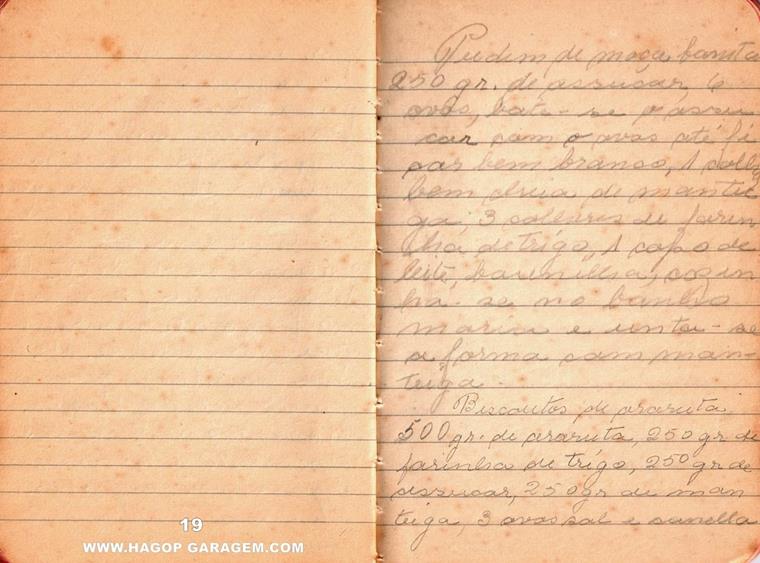 19
WWW.HAGOP GARAGEM.COM
Pudim de moça bonita
250 gr. de assucar, 6
ovos, bate-se o assu
car com o ovos até fi
car bem branco, 1 colher
bem cheia de mantei
ga, 3 colheres de farin
ha de trigo, 1 copo de
leite, baunilha, cosin
ha-se no banho
maria e unta-se
a forma com man-
teiga.
Biscoutos de araruta
500 gr. de araruta, 250 gr de
farinha de trigo, 250 gr de
assucar, 250 gr de man
teiga, 3 ovos sal e canella